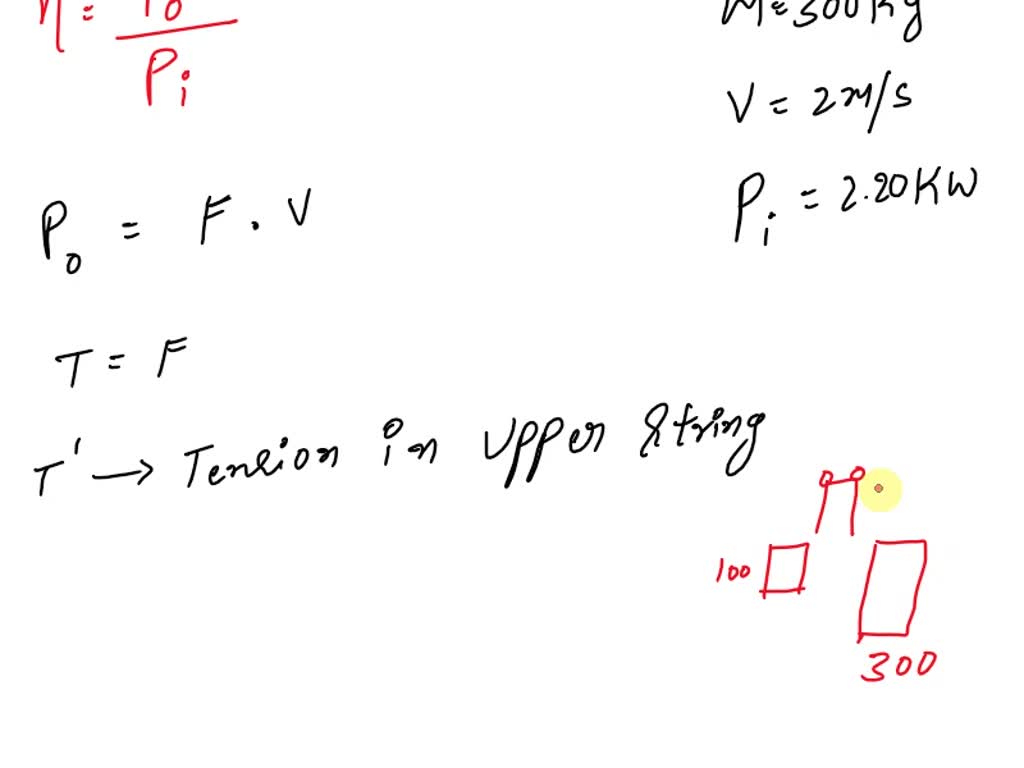 η = Po / Pi
M = 300 Kg
V = 2 m/s
Pi = 2.20 KW
Po = F . V
T = F
T' → Tension in Upper String
100
300